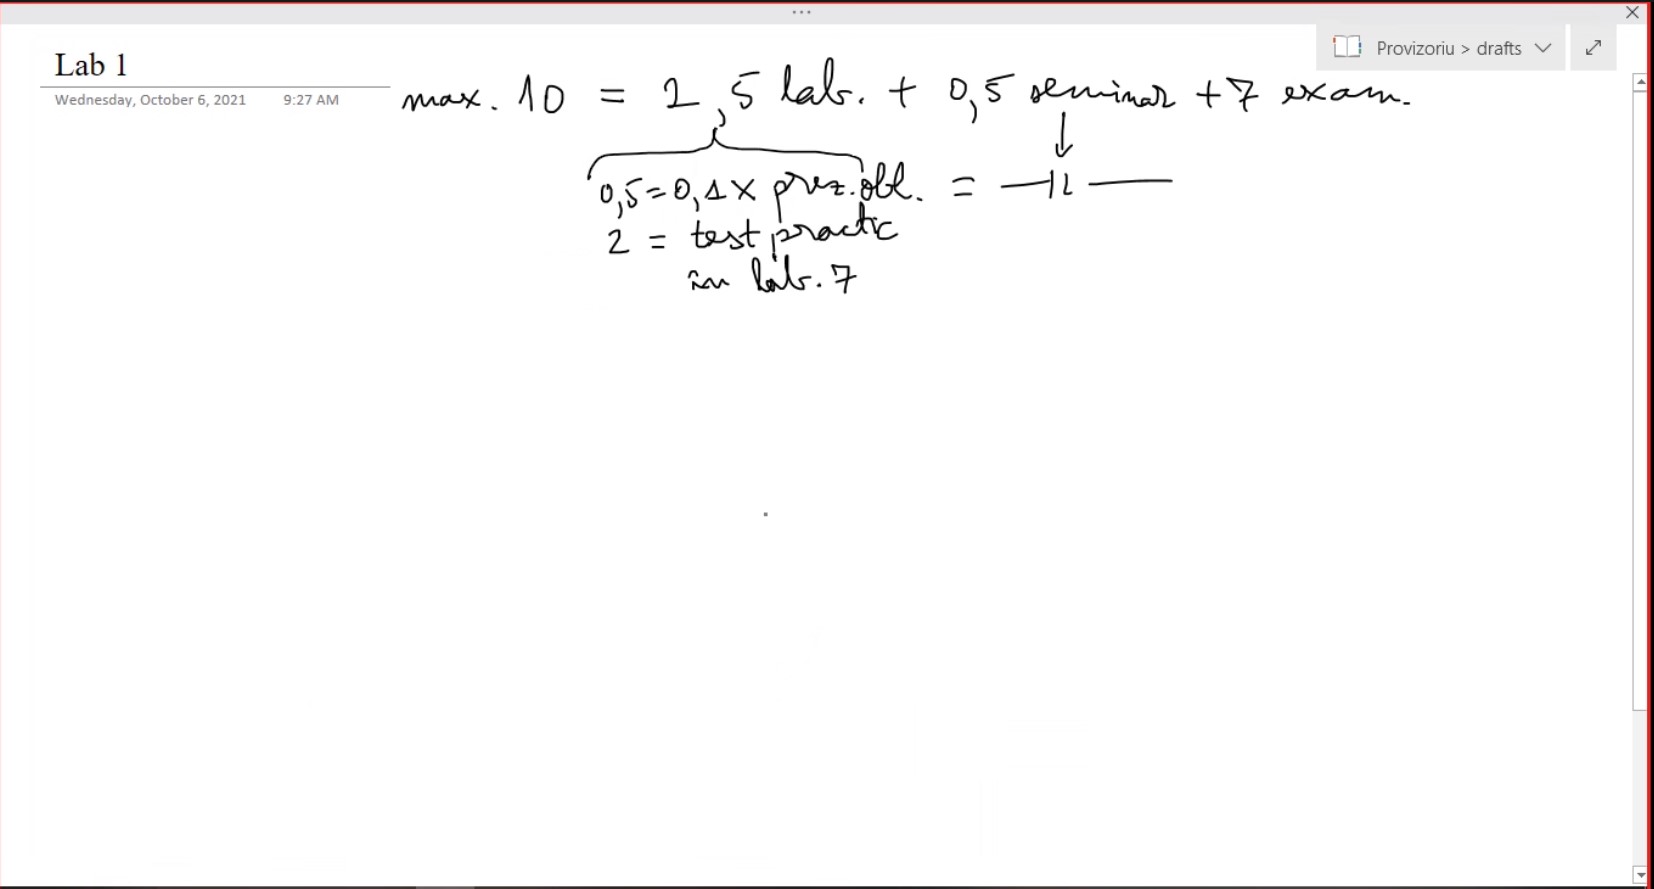 Provizoriu > drafts
Lab 1
Wednesday, October 6, 2021 9:27 AM
max. 10 = 2,5 lab. + 0,5 seminar + 7 exam.
0,5 = 0,1 x prez. obl. = —11—
2 = test practic
în lab. 7